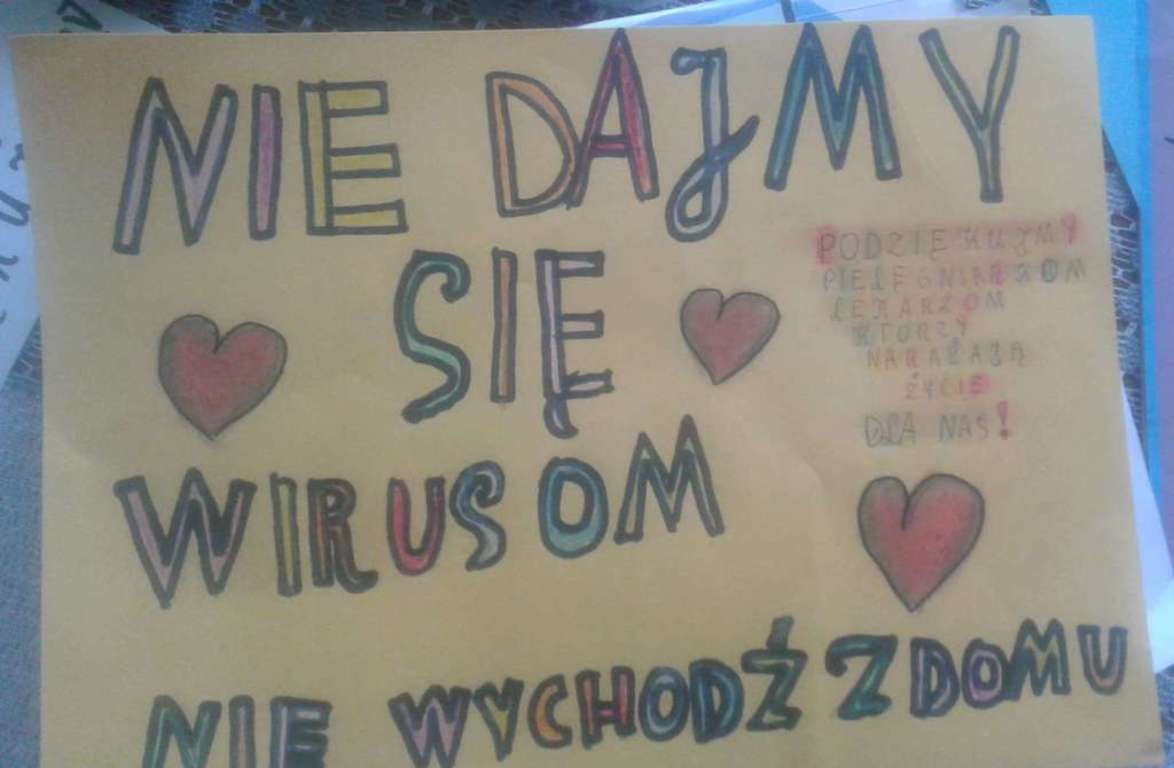 NIE DAJMY
SIĘ
WIRUSOM
NIE WYCHODŹ Z DOMU
PODZIĘKUJMY
PIELĘGNIARKOM
LEKARZOM
KTÓRZY
NARAŻAJĄ
ŻYCIE
DLA NAS!